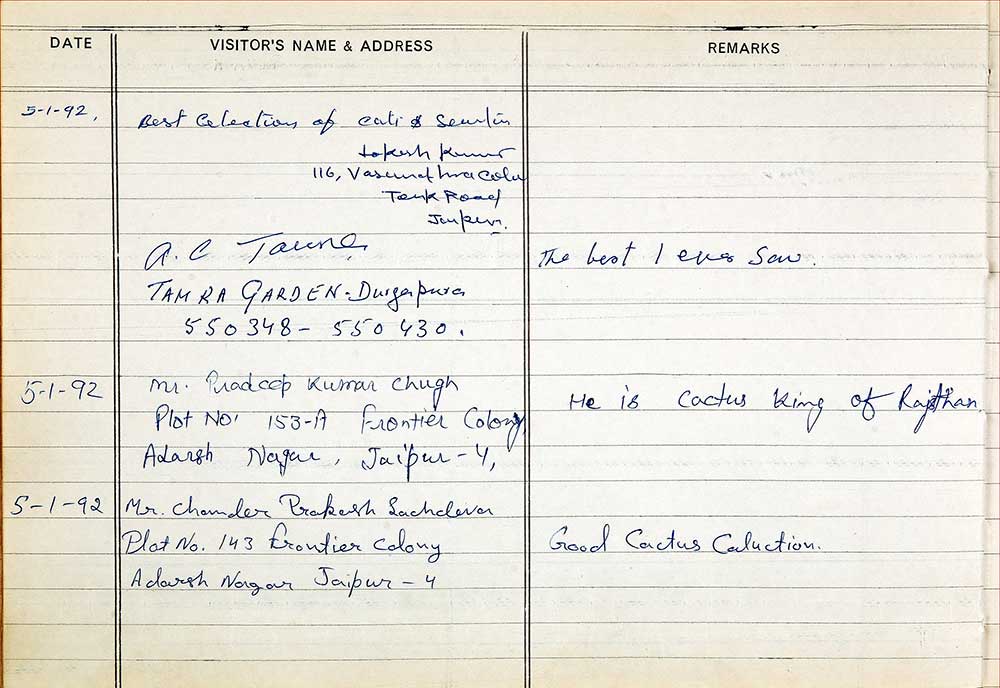 DATE VISITOR'S NAME & ADDRESS REMARKS
5-1-92, Best Celection of cati &
Lokesh Kumar
116, Vasundhra Colo
Tonk Road
Jaipur.
A.C The best I ever Saw.
TAMRA GARDEN - Durgapura
550348 - 550430.
5-1-92 Mr. Pradeep Kumar Chugh He is Cactus King of Rajsthan.
Plot NO. 153-A Frontier Colony
Adarsh Nagar, Jaipur-4,
5-1-92 Mr. Chander Prakash Sachdeva
Plot No. 143 Frontier Colony Good Cactus Caluction.
Adarsh Nagar Jaipur-4